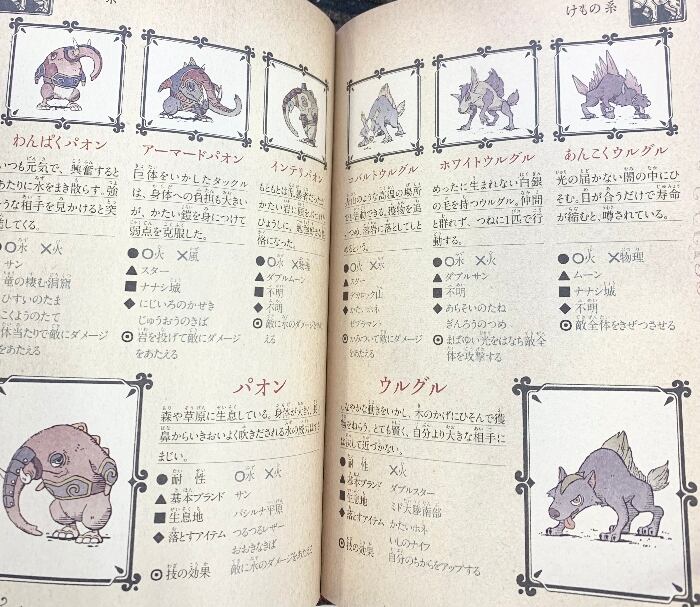 系
わんぱくパオン
いつも元気で、興奮すると
あたりに水をまき散らす。強
そうな相手を見かけると突
進してくる。
○水 ×火
サン
竜の棲む洞窟
ひすいのたま
こくようのたて
体当たりで敵にダメージ
をあたえる
アーマードパオン
巨体をいかしたタックル
は、身体への負担も大きい
が、かたい鎧を身につけて
弱点を克服した。
●○火 ×風
▲スター
■ナナシ城
◆にじいろのかせき
じゅうおうのきば
◉岩を投げて敵にダメージ
をあたえる
インテリパオン
●○水 ×物理
▲ダブルムーン
■不明
◆不明
◉敵に水のダメージをあた
える
パオン
森や草原に生息している。身体が大きく、長い
鼻からいきおいよく吹きだされる水の威力はすさ
まじい。
●耐性 ○水 ×火
▲基本ブランド サン
■生息地 バシルナ平原
◆落とすアイテム つるつるレザー
おおきなきば
◉技の効果 敵に水のダメージをあたえる
けもの系
コバルトウルグル
●○火 ×水
▲スター
■デカロック山
◆かたいホネ
ゼブラマント
◉かみついて敵にダメージ
をあたえる
ホワイトウルグル
めったに生まれない白銀
の毛を持つウルグル。仲間
と群れず、つねに1匹で行
動する。
●○水 ×火
▲ダブルサン
■不明
◆あらそいのたね
ぎんろうのつめ
◉まばゆい光をはなち敵全
体を攻撃する
あんこくウルグル
光の届かない闇の中にひ
そむ。目が合うだけで寿命
が縮むと、噂されている。
●○火 ×物理
▲ムーン
■ナナシ城
◆不明
◉敵全体をきぜつさせる
ウルグル
しなやかな動きをいかし、木のかげにひそんで獲
物をねらう。とても賢く、自分より大きな相手に
は決して近づかない。
●耐性 ×火
▲基本ブランド ダブルスター
■生息地 ミド大陸南部
◆落とすアイテム かたいホネ
いしのナイフ
◉技の効果 自分のちからをアップする